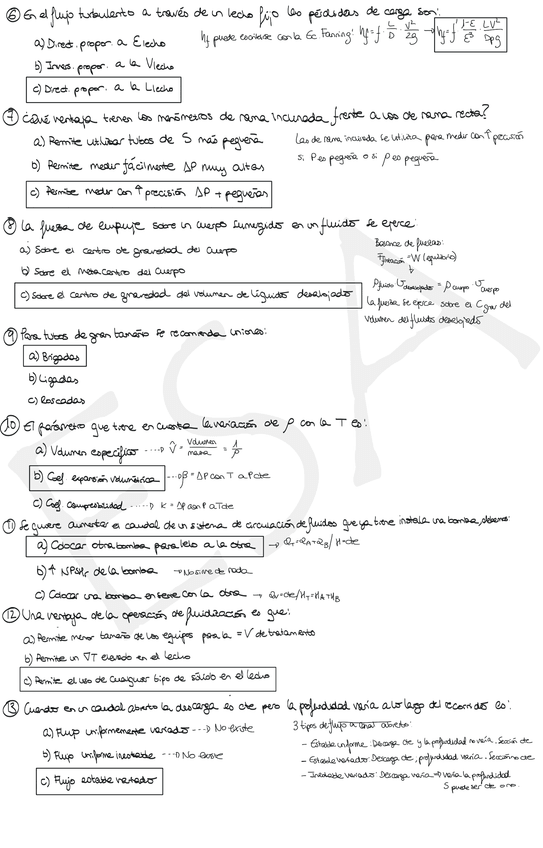 ⑥ En el flujo turbulento a través de un lecho fijo las pérdidas de carga son:
a) Direct. propor. a Elecho
b) Invers. propor. a la Vlecho
c) Direct. propor. a la Llecho
hf puede escribirse con la Ec Fanning: hf = f · L/D · V²/2g → hf = f' 1-E/E³ · LV²/Dpg
⑦ ¿Qué ventaja tienen los manómetros de rama inclinada frente a los de rama recta?
a) Permite utilizar tubos de S más pequeña
b) Permite medir fácilmente ΔP muy altas
c) Permite medir con ↑ precisión ΔP + pequeñas
Los de rama inclinada se utiliza para medir con ↑ precisión
si P es pequeña o si ρ es pequeña
⑧ La fuerza de empuje sobre un cuerpo sumergido en un fluido se ejerce:
a) Sobre el centro de gravedad del cuerpo
b) Sobre el metacentro del cuerpo
c) Sobre el centro de gravedad del volumen de líquidos desalojado
Balance de fuerzas:
Fflotación = W (equilibrio)
ρfluido · Udesalojado = ρcuerpo · Ucuerpo
la fuerza se ejerce sobre el Cgrav del
volumen del fluidos desalojado
⑨ Para tubos de gran tamaño se recomienda uniones:
a) Bridadas
b) Ligadas
c) Roscadas
⑩ El parámetro que tiene en cuenta la variación de ρ con la T es:
a) Volumen específico ----> V̂ = Volumen/masa = 1/ρ
b) Coef. expansión volumétrica ---> β = Δρ con T a P cte
c) Coef. compresibilidad -----> K = Δρ con P a T cte
⑪ Se quiere aumentar el caudal de un sistema de circulación de fluidos que ya tiene instala una bomba, debemos:
a) Colocar otra bomba paralelo a la otra → QT = QA + QB / H = cte
b) ↑ NPSHr de la bomba → No sirve de nada
c) Colocar una bomba en serie con la otra → Qv = cte / HT = HA + HB
⑫ Una ventaja de la operación de fluidización es que:
a) Permite menor tamaño de los equipos para la = V de tratamiento
b) Permite un ∇T elevado en el lecho
c) Permite el uso de cualquier tipo de sólido en el lecho
⑬ Cuando en un caudal abierto la descarga es cte pero la profundidad varía a lo largo del recorrido es:
a) Flujo uniformemente variado ---> No existe
b) Flujo uniforme inestable ---> No existe
c) Flujo estable variado
3 tipos de flujo a canal abierto:
- Estable uniforme: Descarga cte y la profundidad no varía. Sección cte
- Estable variado: Descarga cte, profundidad varía. Sección no cte
- Inestable variado: Descarga varía ⇒ varía la profundidad
S puede ser cte o no.
ESA